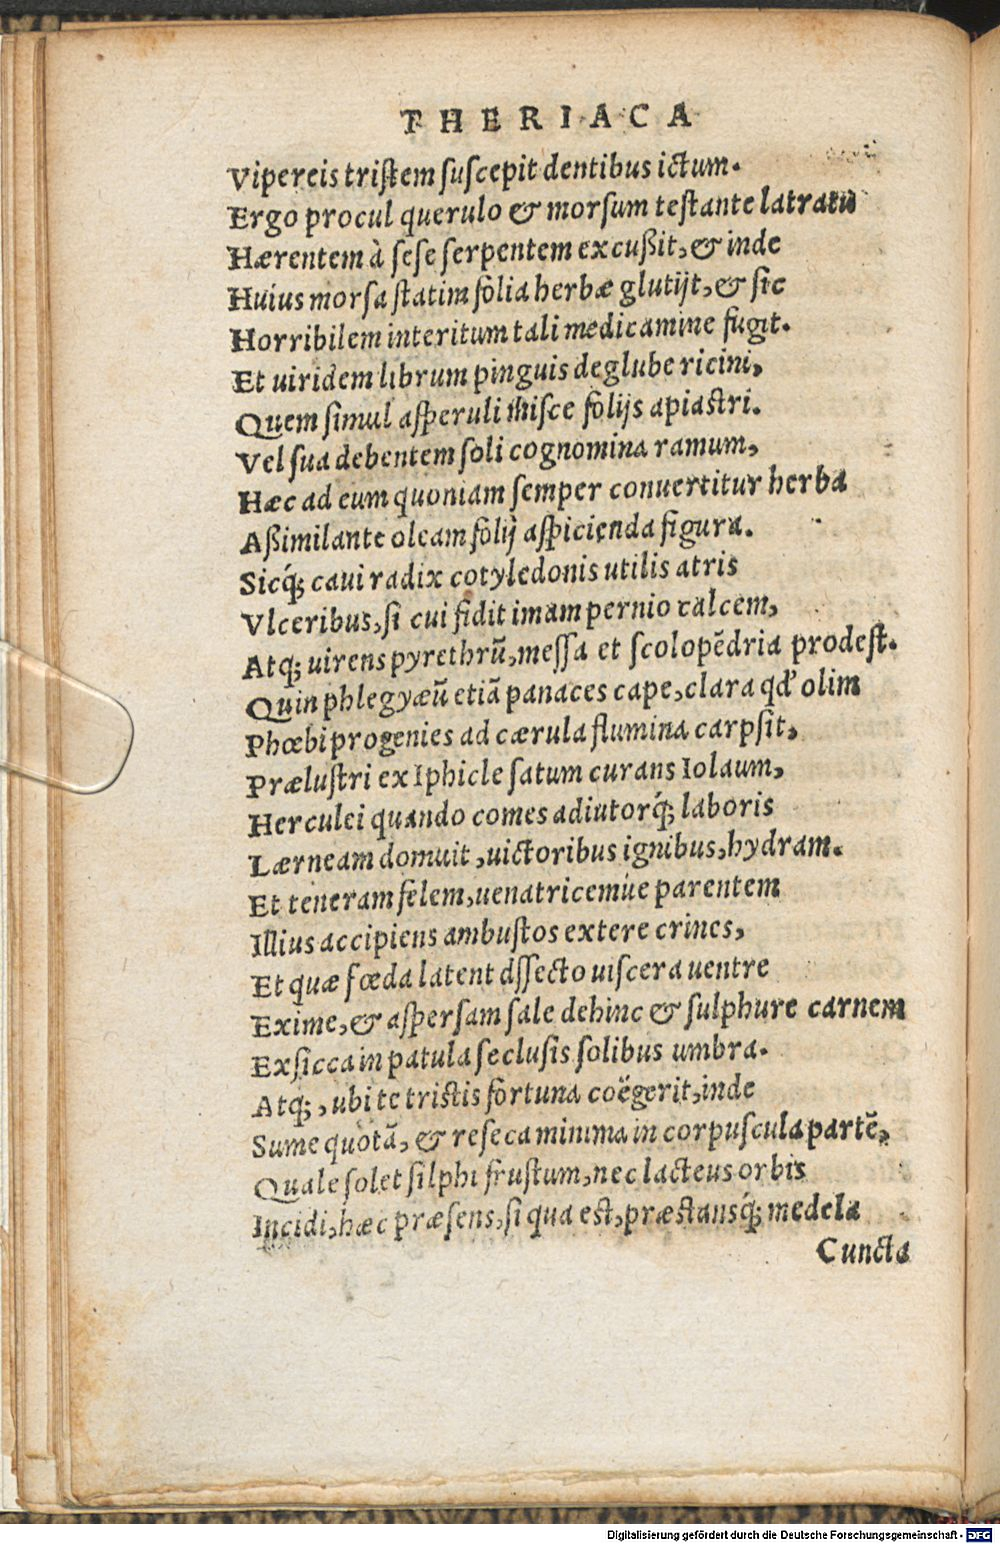 THERIACA
Vipereis tristem suscepit dentibus ictum.
Ergo procul querulo & morsum testante latratu
Hærentem à sese serpentem excußit, & inde
Huius morsa statim folia herbæ glutijt, & sic
Horribilem interitum tali medicamine fugit.
Et uiridem librum pinguis deglube ricini,
Quem simul asperuli misce folijs apiastri.
Vel sua debentem soli cognomina ramum,
Hæc ad eum quoniam semper conuertitur herba
Aßimilante oleam folij aspicienda figura.
Sicq́; caui radix cotyledonis utilis atris
Vlceribus, si cui fidit imam pernio calcem,
Atq; uirens pyrethrũ, messa et scolopẽdria prodest.
Quin phlegyæũ etiã panaces cape, clara qđ olim
Phœbi progenies ad cærula flumina carpsit,
Prælustri ex Iphicle satum curans Iolaum,
Herculei quando comes adiutorq́; laboris
Lærneam domuit, uictoribus ignibus, hydram.
Et teneram felem, uenatricemúe parentem
Illius accipiens ambustos extere crines,
Et quæ fœda latent dssecto uiscera uentre
Exime, & aspersam sale dehinc & sulphure carnem
Exsicca in patula seclusis solibus umbra.
Atq;, ubi te tristis fortuna coëgerit, inde
Sume quotã, & reseca minima in corpuscula partẽ,
Quale solet silphi frustum, nec lacteus orbis
Incidi, hæc præsens, si qua est, præstansq́; medela
Cuncta
Digitalisierung gefördert durch die Deutsche Forschungsgemeinschaft - DFG